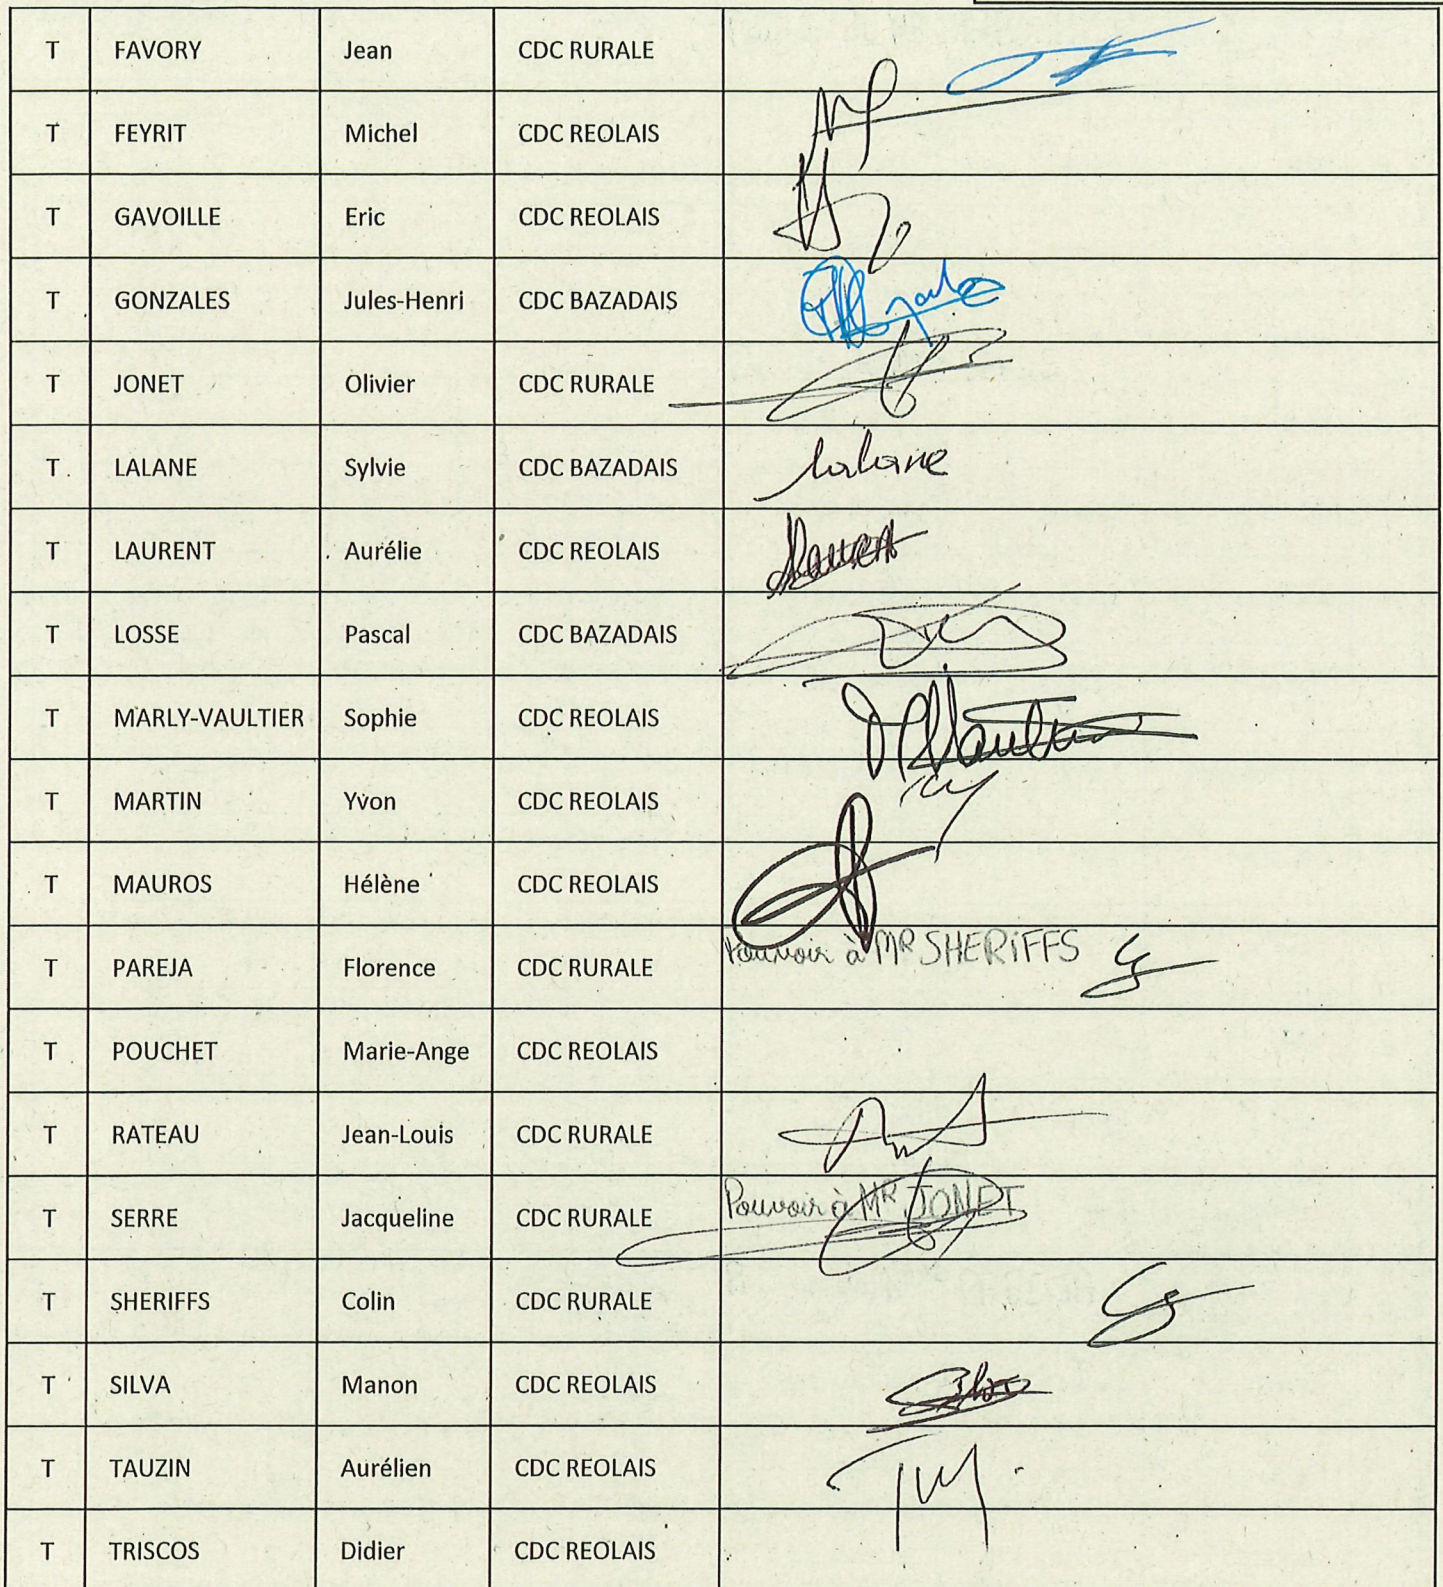 T FAVORY Jean CDC RURALE
T FEYRIT Michel CDC REOLAIS
T GAVOILLE Eric CDC REOLAIS
T GONZALES Jules-Henri CDC BAZADAIS
T JONET Olivier CDC RURALE
T LALANE Sylvie CDC BAZADAIS lalane
T LAURENT Aurélie CDC REOLAIS
T LOSSE Pascal CDC BAZADAIS
T MARLY-VAULTIER Sophie CDC REOLAIS
T MARTIN Yvon CDC REOLAIS
T MAUROS Hélène CDC REOLAIS
T PAREJA Florence CDC RURALE Pouvoir à MR SHERIFFS
T POUCHET Marie-Ange CDC REOLAIS
T RATEAU Jean-Louis CDC RURALE
T SERRE Jacqueline CDC RURALE Pouvoir à MR JONET
T SHERIFFS Colin CDC RURALE
T SILVA Manon CDC REOLAIS
T TAUZIN Aurélien CDC REOLAIS
T TRISCOS Didier CDC REOLAIS